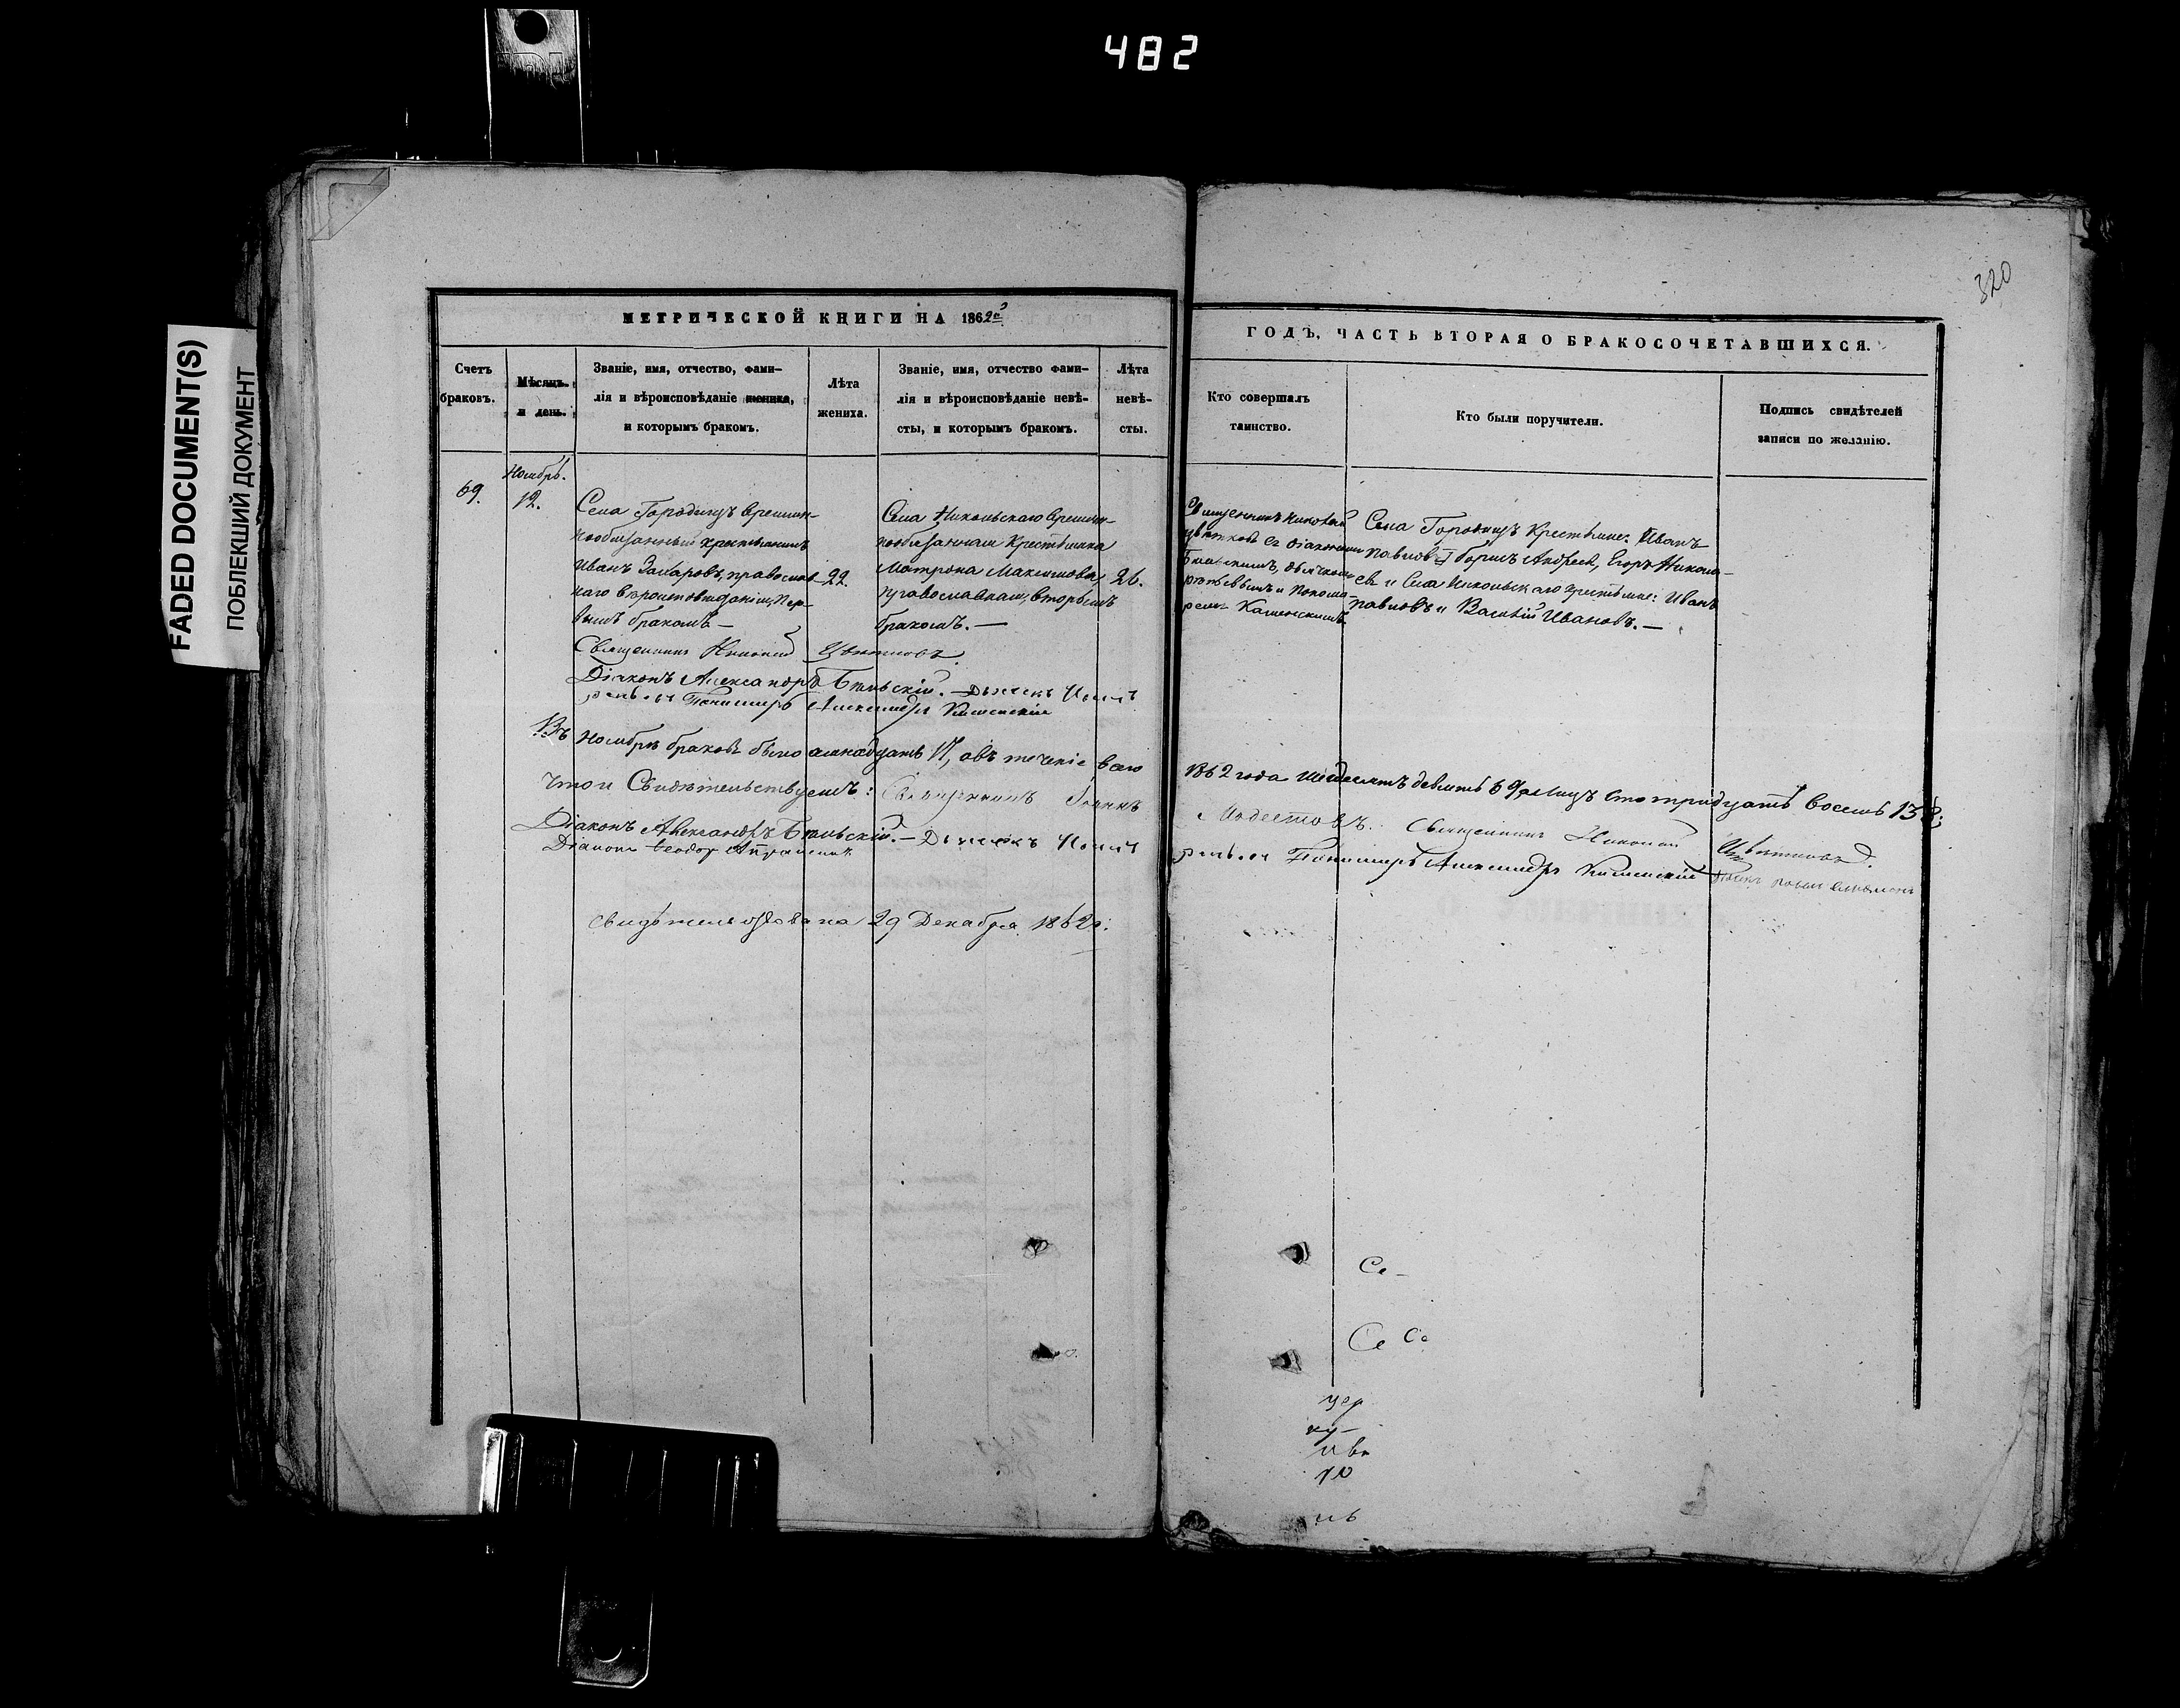 482
FADED DOCUMENT(S)
ПОБЛЕКШИЙ ДОКУМЕНТ
320
МЕТРИЧЕСКОЙ КНИГИ НА 1862й
ГОДЪ, ЧАСТЬ ВТОРАЯ О БРАКОСОЧЕТАВШИХСЯ.
Счетъ
браковъ.
Мѣсяцъ
и день.
Званіе, имя, отчество, фами-
лія и вѣроисповѣданіе жениха,
и которымъ бракомъ.
Лѣта
жениха.
Званіе, имя, отчество фами-
лія и вѣроисповѣданіе невѣ-
сты, и которымъ бракомъ.
Лѣта
невѣ-
сты.
Кто совершалъ
таинство.
Кто были поручители.
Подпись свидѣтелей
записи по желанію.
69.
Ноябрь.
12.
Села Городищъ временн-
нообязанный крестьянинъ
Иванъ Захаровъ, православ-
наго вѣроисповѣданія, пер-
вымъ бракомъ —
22.
Села Никольскаго времен-
нообязанная крестьянка
Матрона Максимова,
православная, вторымъ
бракомъ. —
26.
Священникъ Николай
Цвѣтковъ съ діакономъ
Бѣльскимъ, дьячкомъ
и понома-
ремъ Каменскимъ
Села Городищъ крестьяне: Иванъ
Павловъ, Борисъ Андреевъ, Егоръ Никола-
евъ и Села Никольскаго крестьяне: Иванъ
Павловъ и Василій Ивановъ. —
Священникъ Николай Цвѣтковъ.
Діаконъ Александръ Бѣльскій. — Дьячекъ
Пономарь Александръ Каменскій
Въ Ноябрѣ браковъ было
въ теченіе всего
1862 года шедесятъ девять 69 а лицъ сто тридцать восемь 138;
что и свидѣтельствуемъ: Священникъ Іоаннъ
Модестовъ. Священникъ Николай Цвѣтковъ.
Діаконъ Александръ Бѣльскій. — Дьячекъ
Пономарь Александръ Каменскій
Діаконъ Ѳеодоръ
Свидѣтельствована 29 Декабря 1862 г:
Се-
Се Се
цер
ку-
ива
10
нъ